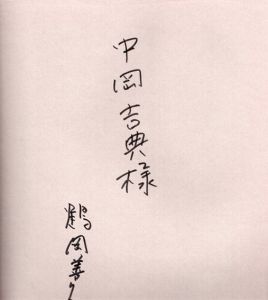 中岡吉典様
鶴岡善久